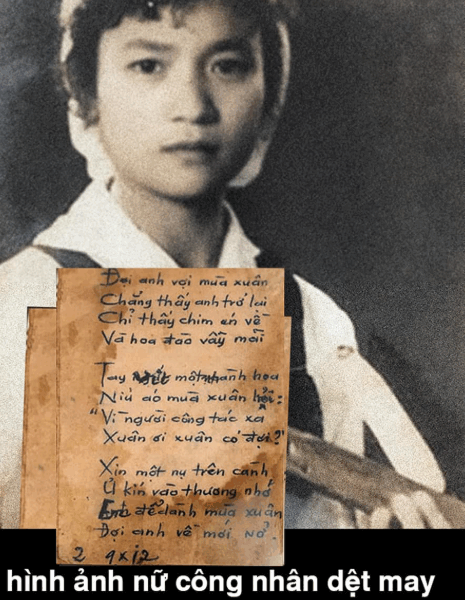 Đợi anh vợi mùa xuân
Chẳng thấy anh trở lại
Chỉ thấy chim én về
Và hoa đào vẫy mời
Tay một nhành hoa
Níu áo mùa xuân hỏi:
"Vì người công tác xa
Xuân ơi xuân có đợi?"
Xin một nụ trên cành
Ủ kín vào thương nhớ
Em để dành mùa xuân
Đợi anh về mới nở.
2
hình ảnh nữ công nhân dệt may